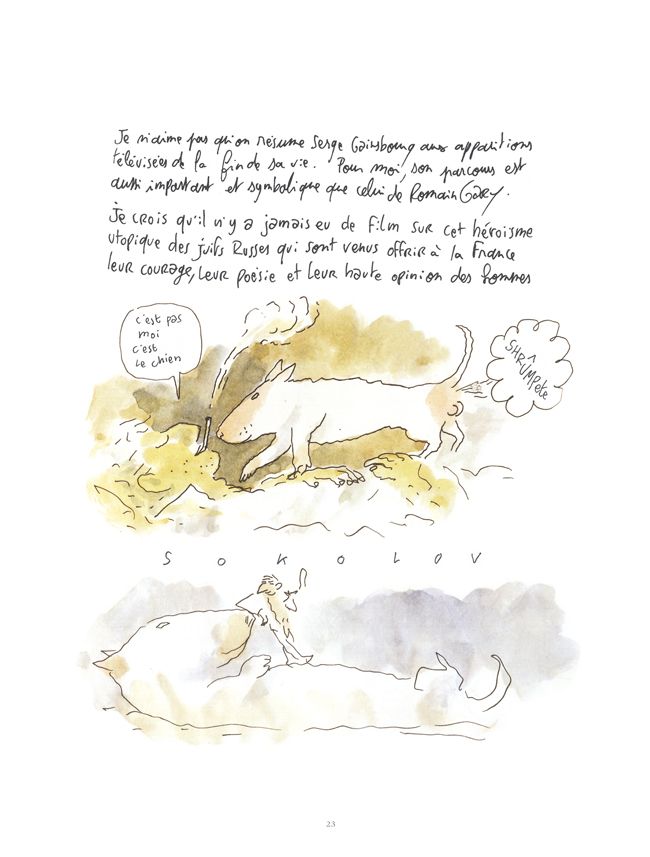 Je n'aime pas qu'on résume Serge Gainsbourg aux apparitions
télévisées de la fin de sa vie. Pour moi, son parcours est
aussi important et symbolique que celui de Romain Gary.
Je crois qu'il n'y a jamais eu de film sur cet héroïsme
utopique des juifs Russes qui sont venus offrir à la France
leur courage, leur poésie et leur haute opinion des hommes
c'est pas
moi
c'est
le chien
SHRÛMPETE
SOKOLOV
23